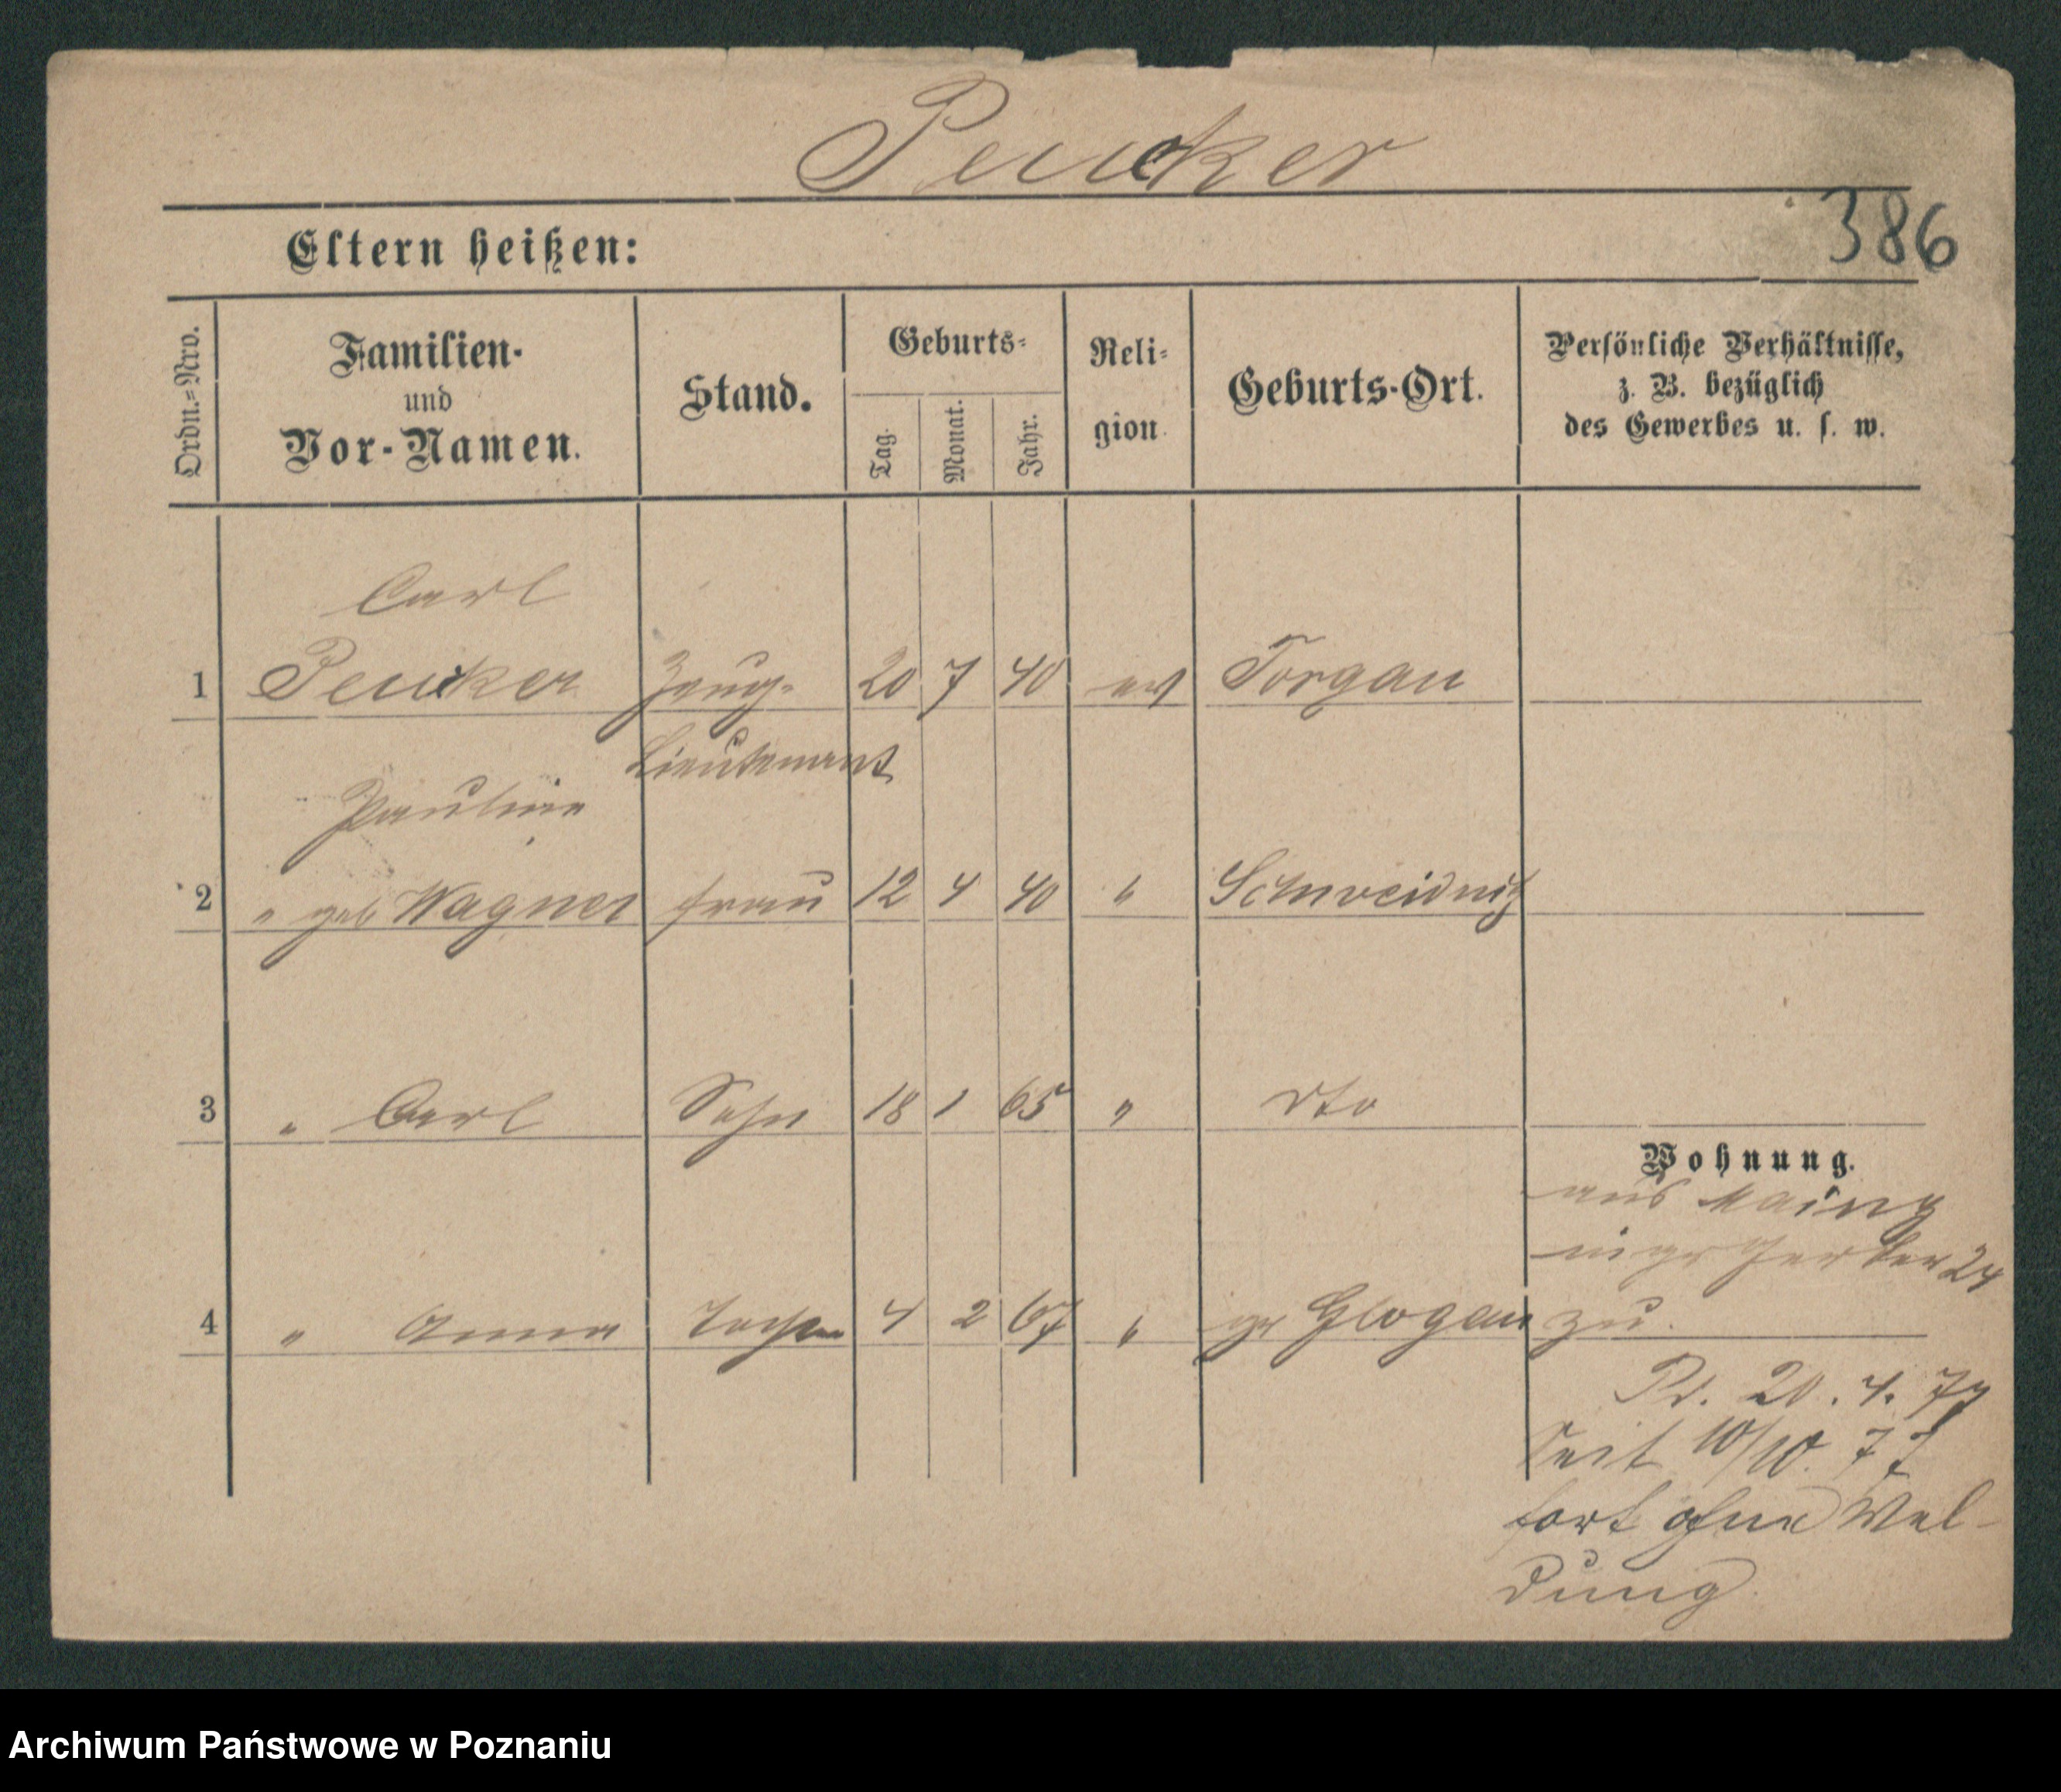 Peucker
386
Eltern heißen:
Ordn.=Nro.
Familien-
und
Vor-Namen.
Stand.
Geburts-
Tag.
Monat.
Jahr.
Reli-
gion
Geburts-Ort.
Persönliche Verhältnisse,
z. B. bezüglich
des Gewerbes u. s. w.
Carl
1 Peucker Zeug- 20 7 40 ev Torgau
Lieutenant
Pauline
2 " geb Wagner Frau 12 4 40 " Schweidnitz
3 " Carl Sohn 18 1 65 " dto
Wohnung.
aus Mainz
24
4 " Anna Tochter 4 2 67 " gr Glogau
zu.
Pd. 20. 4. 77
Seit 10/10. 77
fort ohne Mel-
dung
Archiwum Państwowe w Poznaniu